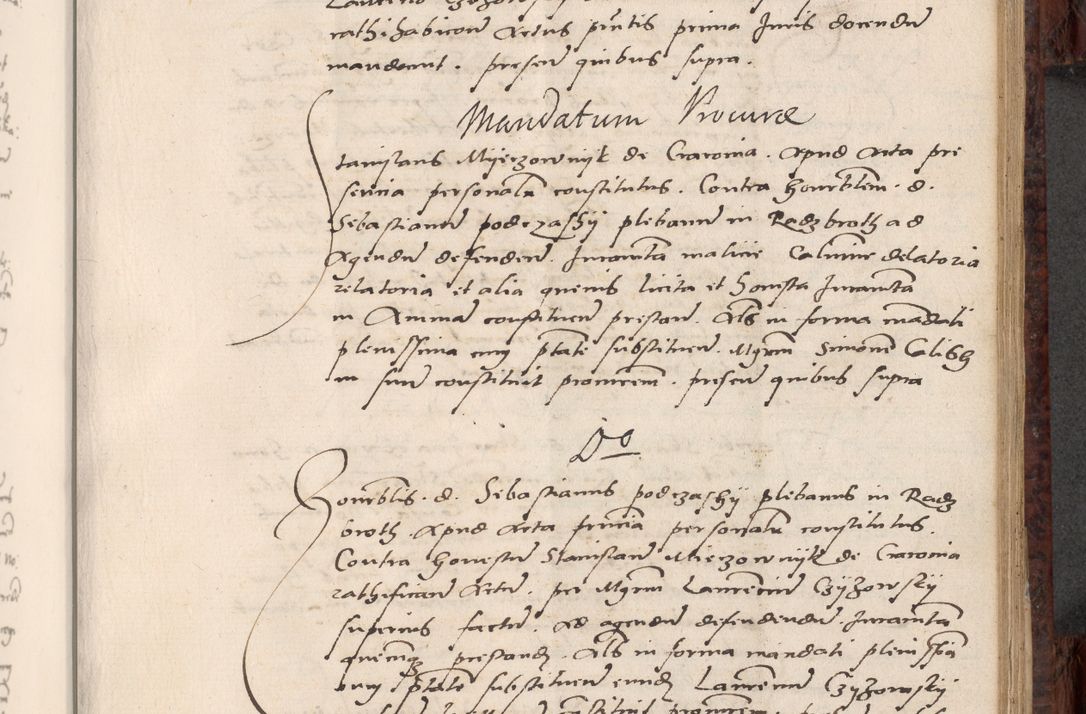 rathihabicon Actus pñtis prima Juris docendu
mandavit. presen quibus supra.
Mandatum Procurae
Stanislaus Myeczownyk de Cracovia. Apud Acta pre
sencia personalr constitutus. Contra honorblem. d.
Sebastianu podczashy plebanu in Radzbroth ad
Agendu defendend. Juramta malicie Calumie delatoria
relatoria et alia quevis licita et honesta Juramta
in Anima constituen prestan. Als in forma mandati
plenissima cum ptate substituen. Mgrm Simone Calish
in suu constituit procurem. presen quibus supra
Do
Honorblis. d. Sebastianus podczashy plebanus in Radz
broth Apud Acta presencia personalr constitutus.
Contra honestu Stanislau Mieczownyk de Cracovia
rathifican Actu. per Mgrm Laurenciu Czyzowsky
superius factu. Ad agendu defendendu Juramta
quecunq prestand. Als in forma mandati plenissa
cum ptate substituen eund Laurenciu Czyzowsky
constituit procurem